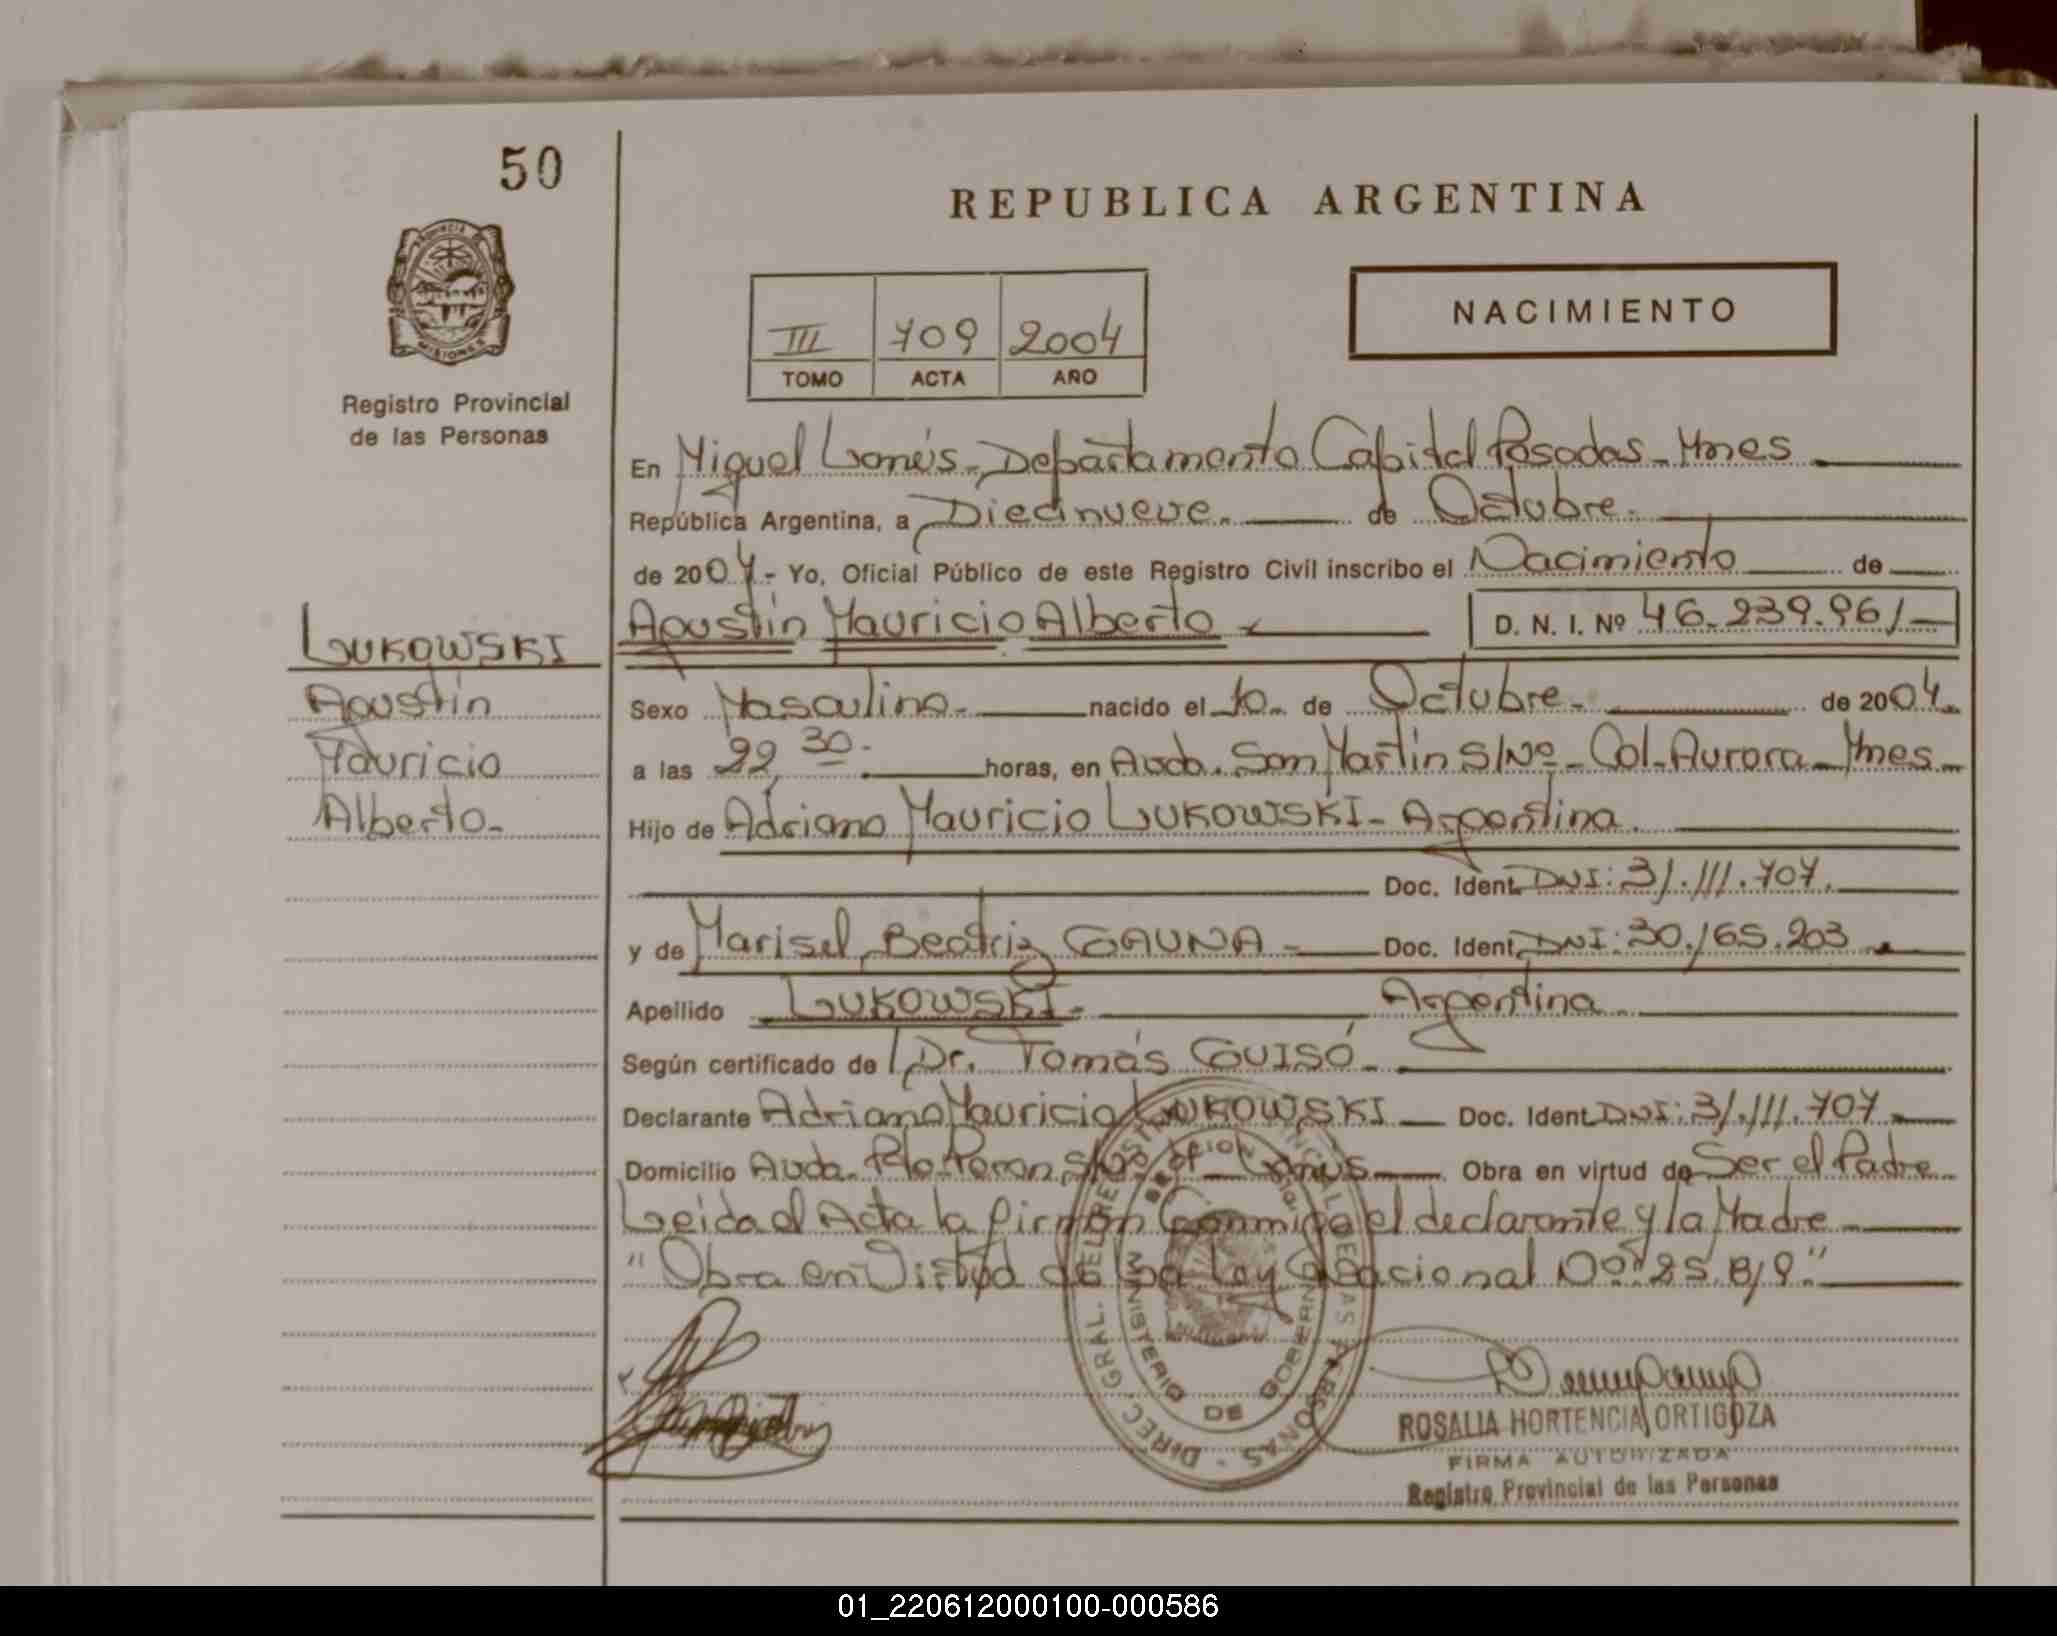 50
REPUBLICA ARGENTINA
PROVINCIA DE
MISIONES
NACIMIENTO
III 709 2004
TOMO ACTA AÑO
Registro Provincial
de las Personas
En Miguel Lanús - Departamento Capital Posadas - Mnes
República Argentina, a Diecinueve. de Octubre.
de 2004 - Yo, Oficial Público de este Registro Civil inscribo el Nacimiento de
LUKOWSKI
Agustín Mauricio Alberto D. N. I. Nº 46.239.961
Agustín
Sexo Masculino. nacido el 10. de Octubre. de 2004.
Mauricio
a las 22,30. horas, en Avda. San Martín S/Nº - Col. Aurora - Mnes
Alberto.
Hijo de Adriano Mauricio LUKOWSKI - Argentina.
Doc. Ident. DNI: 31.111.707.
y de Marisel Beatriz GAUNA - Doc. Ident. DNI: 30.165.203
Apellido LUKOWSKI - Argentina
Según certificado de Dr. Tomás GUISÓ.
Declarante Adriano Mauricio LUKOWSKI Doc. Ident. DNI: 31.111.707.
Domicilio Avda. Pte Peron S/Nº Lanus Obra en virtud de Ser el Padre
Leida el Acta la firman Conmigo el declarante y la Madre
"Obra en Virtud de la Ley Nacional Nº 25.819."
DIREC. GRAL. DEL REGISTRO PROVINCIAL DE LAS PERSONAS
MINISTERIO DE GOBIERNO
ROSALIA HORTENCIA ORTIGOZA
FIRMA AUTORIZADA
Registro Provincial de las Personas
01_220612000100-000586